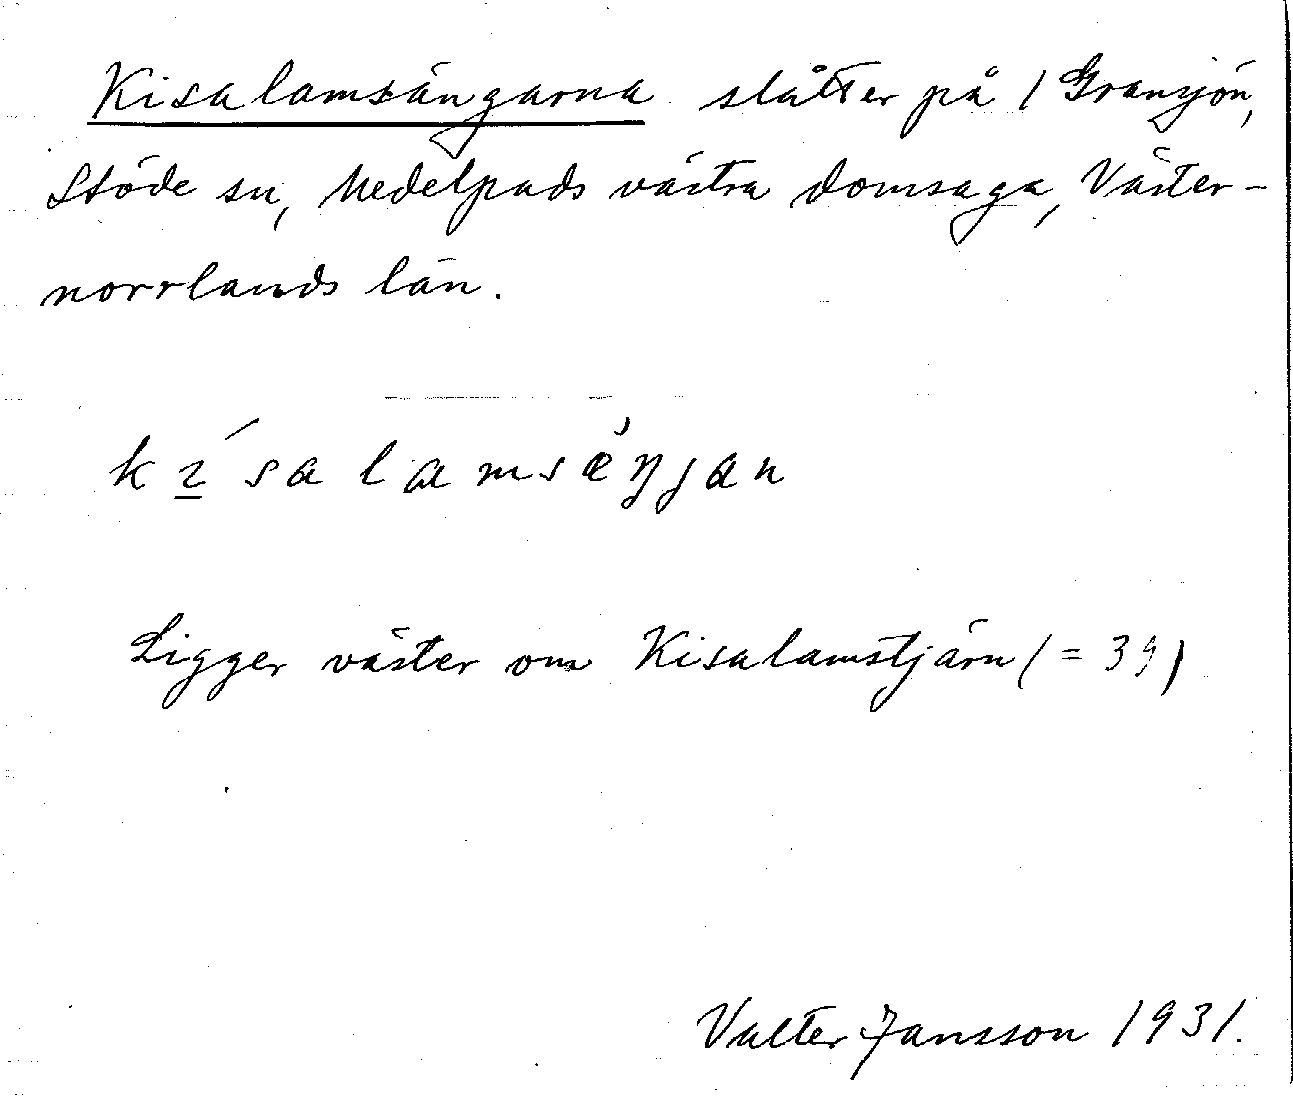 Kisalamsängarna slåtter på 1 Gransjön,
Stöde sn, Medelpads västra domsaga, Väster-
norrlands län.
kɪ́salamsæ̀ŋjan
Ligger väster om Kisalamstjärn (= 39)
Valter Jansson 1931.